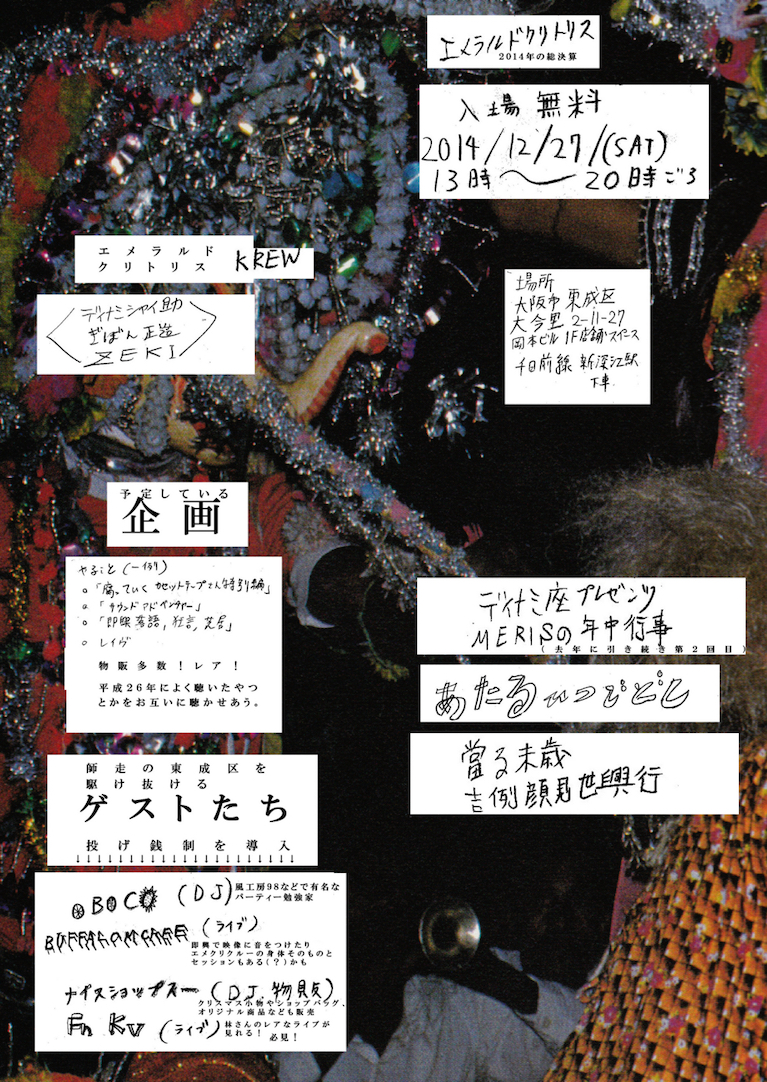 エメラルドクリトリス
2014年の総決算
入場 無料
2014/12/27/(SAT)
13時〜20時ごろ
エメラルド
クリトリス KREW
ディナミシャイ助
ぎぼん正造
ZEKI
場所
大阪市東成区
大今里 2-11-27
岡本ビル 1F店舗スペース
千日前線 新深江駅
下車
予定している
企画
やること(一例)
○「腐っていくカセットテープさん特別編」
○「サウンドアドベンチャー」
○「即興落語,狂言,芝居」
○ レイヴ
物販多数!レア!
平成26年によく聴いたやつ
とかをお互いに聴かせあう。
ディナミ座プレゼンツ
MERISの年中行事
(去年に引き続き第2回目)
あたるひつじどし
當る未歳
吉例顔見世興行
師走の東成区を
駆け抜ける
ゲストたち
投げ銭制を導入
↓↓↓↓↓↓↓↓↓↓↓↓↓↓↓↓↓↓↓↓↓
OBOCO (DJ) 風工房98などで有名な
パーティー勉強家
(ライブ)
即興で映像に音をつけたり
エメクリクルーの身体そのものと
セッションもある(?)かも
ナイスショップスー (DJ,物販)
クリスマス小物やショップバッグ、
オリジナル商品なども販売
Fn Kv (ライブ) 林さんのレアなライブが
見れる! 必見!